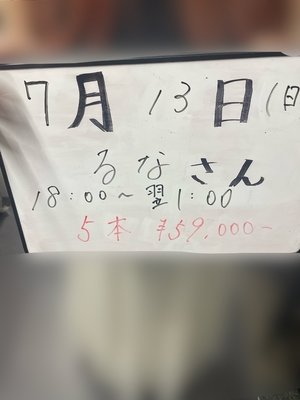 7月13日(日
るなさん
18:00~翌1:00
5本 ¥59,000-